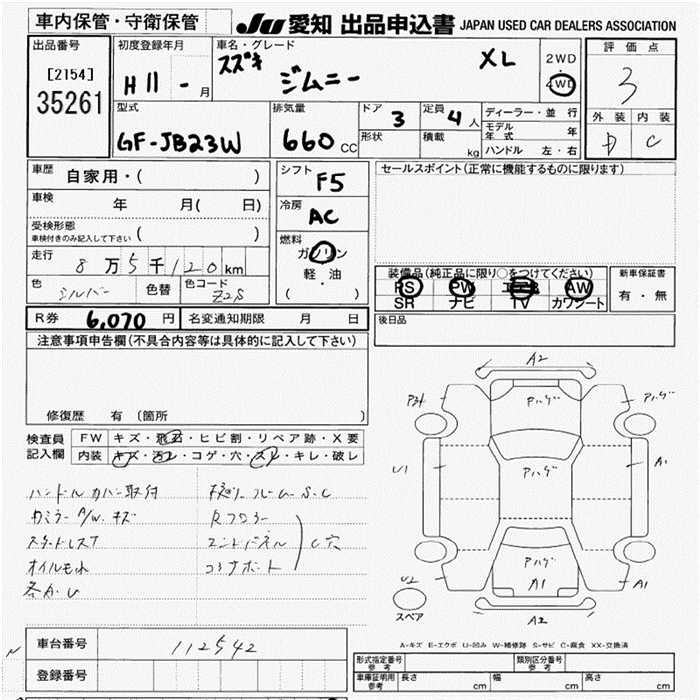 車内保管・守衛保管
JU 愛知 出品申込書 JAPAN USED CAR DEALERS ASSOCIATION
出品番号
[2154]
35261
初度登録年月
H11 - 月
車名・グレード
スズキ ジムニー XL
2WD
・
4WD
評価点
3
外装 内装
D C
型式
GF-JB23W
排気量
660 CC
ドア 3
定員 4 人
形状
積載 kg
ディーラー・並行
モデル年式 年
ハンドル 左・右
車歴 自家用・( )
車検 年 月( 日)
受検形態
車検付きのみ記入して下さい ( )
走行 8万5千120km
色 シルバー 色替 色コード Z2S
シフト F5
冷房 AC
燃料
ガソリン
軽・油
( )
R券 6,070 円 名変通知期限 月 日
セールスポイント(正常に機能するものに限ります)
装備品(純正品に限り○をつけてください)
PS PW エアB AW
SR ナビ TV カワシート
新車保証書
有・無
後日品
注意事項申告欄(不具合内容等は具体的に記入して下さい)
修復歴 有 (箇所 )
検査員記入欄
FW キズ・飛石・ヒビ割・リペア跡・X要
内装 キズ・汚レ・コゲ・穴・スレ・キレ・破レ
ハンドルカバー取付
下廻りフレームS.C
カミラー A/W キズ
Rフロアー
スタッドレスT
エンドパネル
C穴
オイルモレ
コアサポート
各カシ
A2
P31
ハゲ
Pハゲ
U1
A1
Pハゲ
Pハゲ
A1
U2
A1
スペア
A2
A-キズ E-エクボ U-凹み W-補修跡 S-サビ C-腐食 XX-交換済
車台番号 112542
登録番号
形式指定番号 参考
類別区分番号 参考
車庫証明用 参考 長さ cm 幅 cm 高さ cm